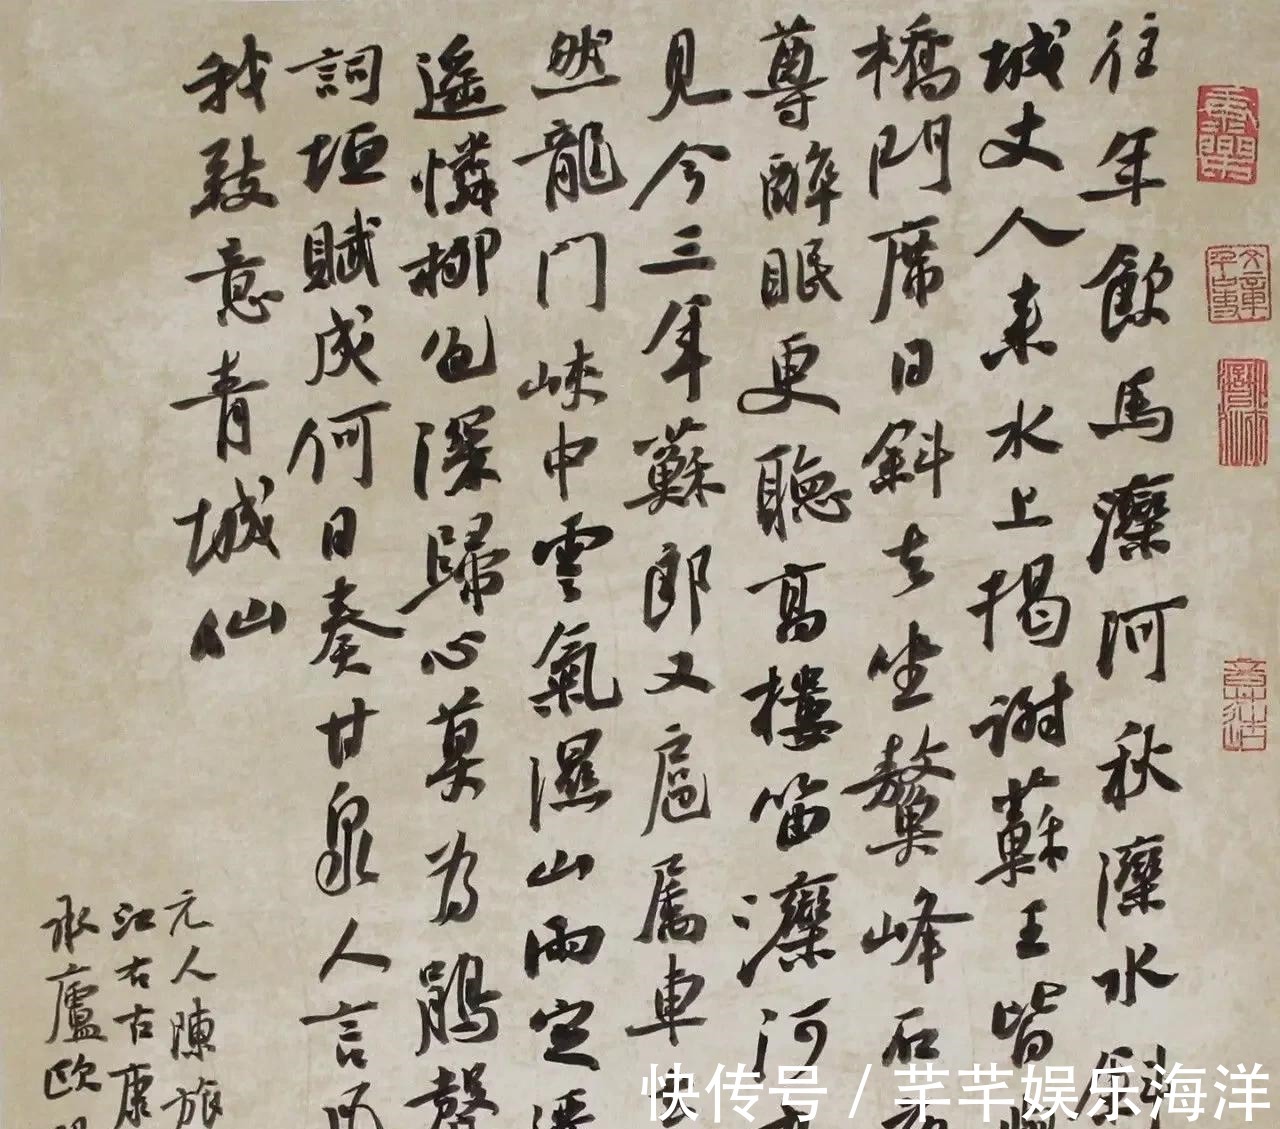 往年飲馬灤河秋灤水
城丈人来水上揭謝蘇王皆
橋門席日斜去坐鼇峰石
尊醉眠更聽高樓笛灤河
見今三年蘇郎又扈属車
然龍门峽中雲氣濕山雨定
遥憐柳色深歸心莫为鵑聲
詞垣賦成何日奏甘泉人言
我致意青城仙
元人陳旅
江右古康
承廬欧
快传号/芊芊娱乐海洋